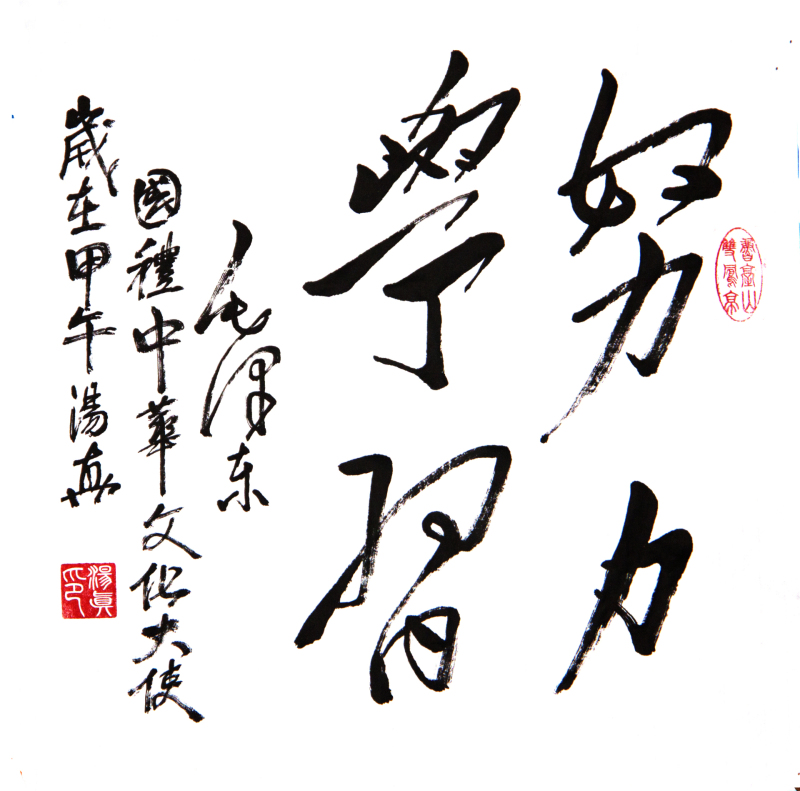 努力
學習
毛泽东
國禮中華文化大使
歲在甲午湯真
湯真印